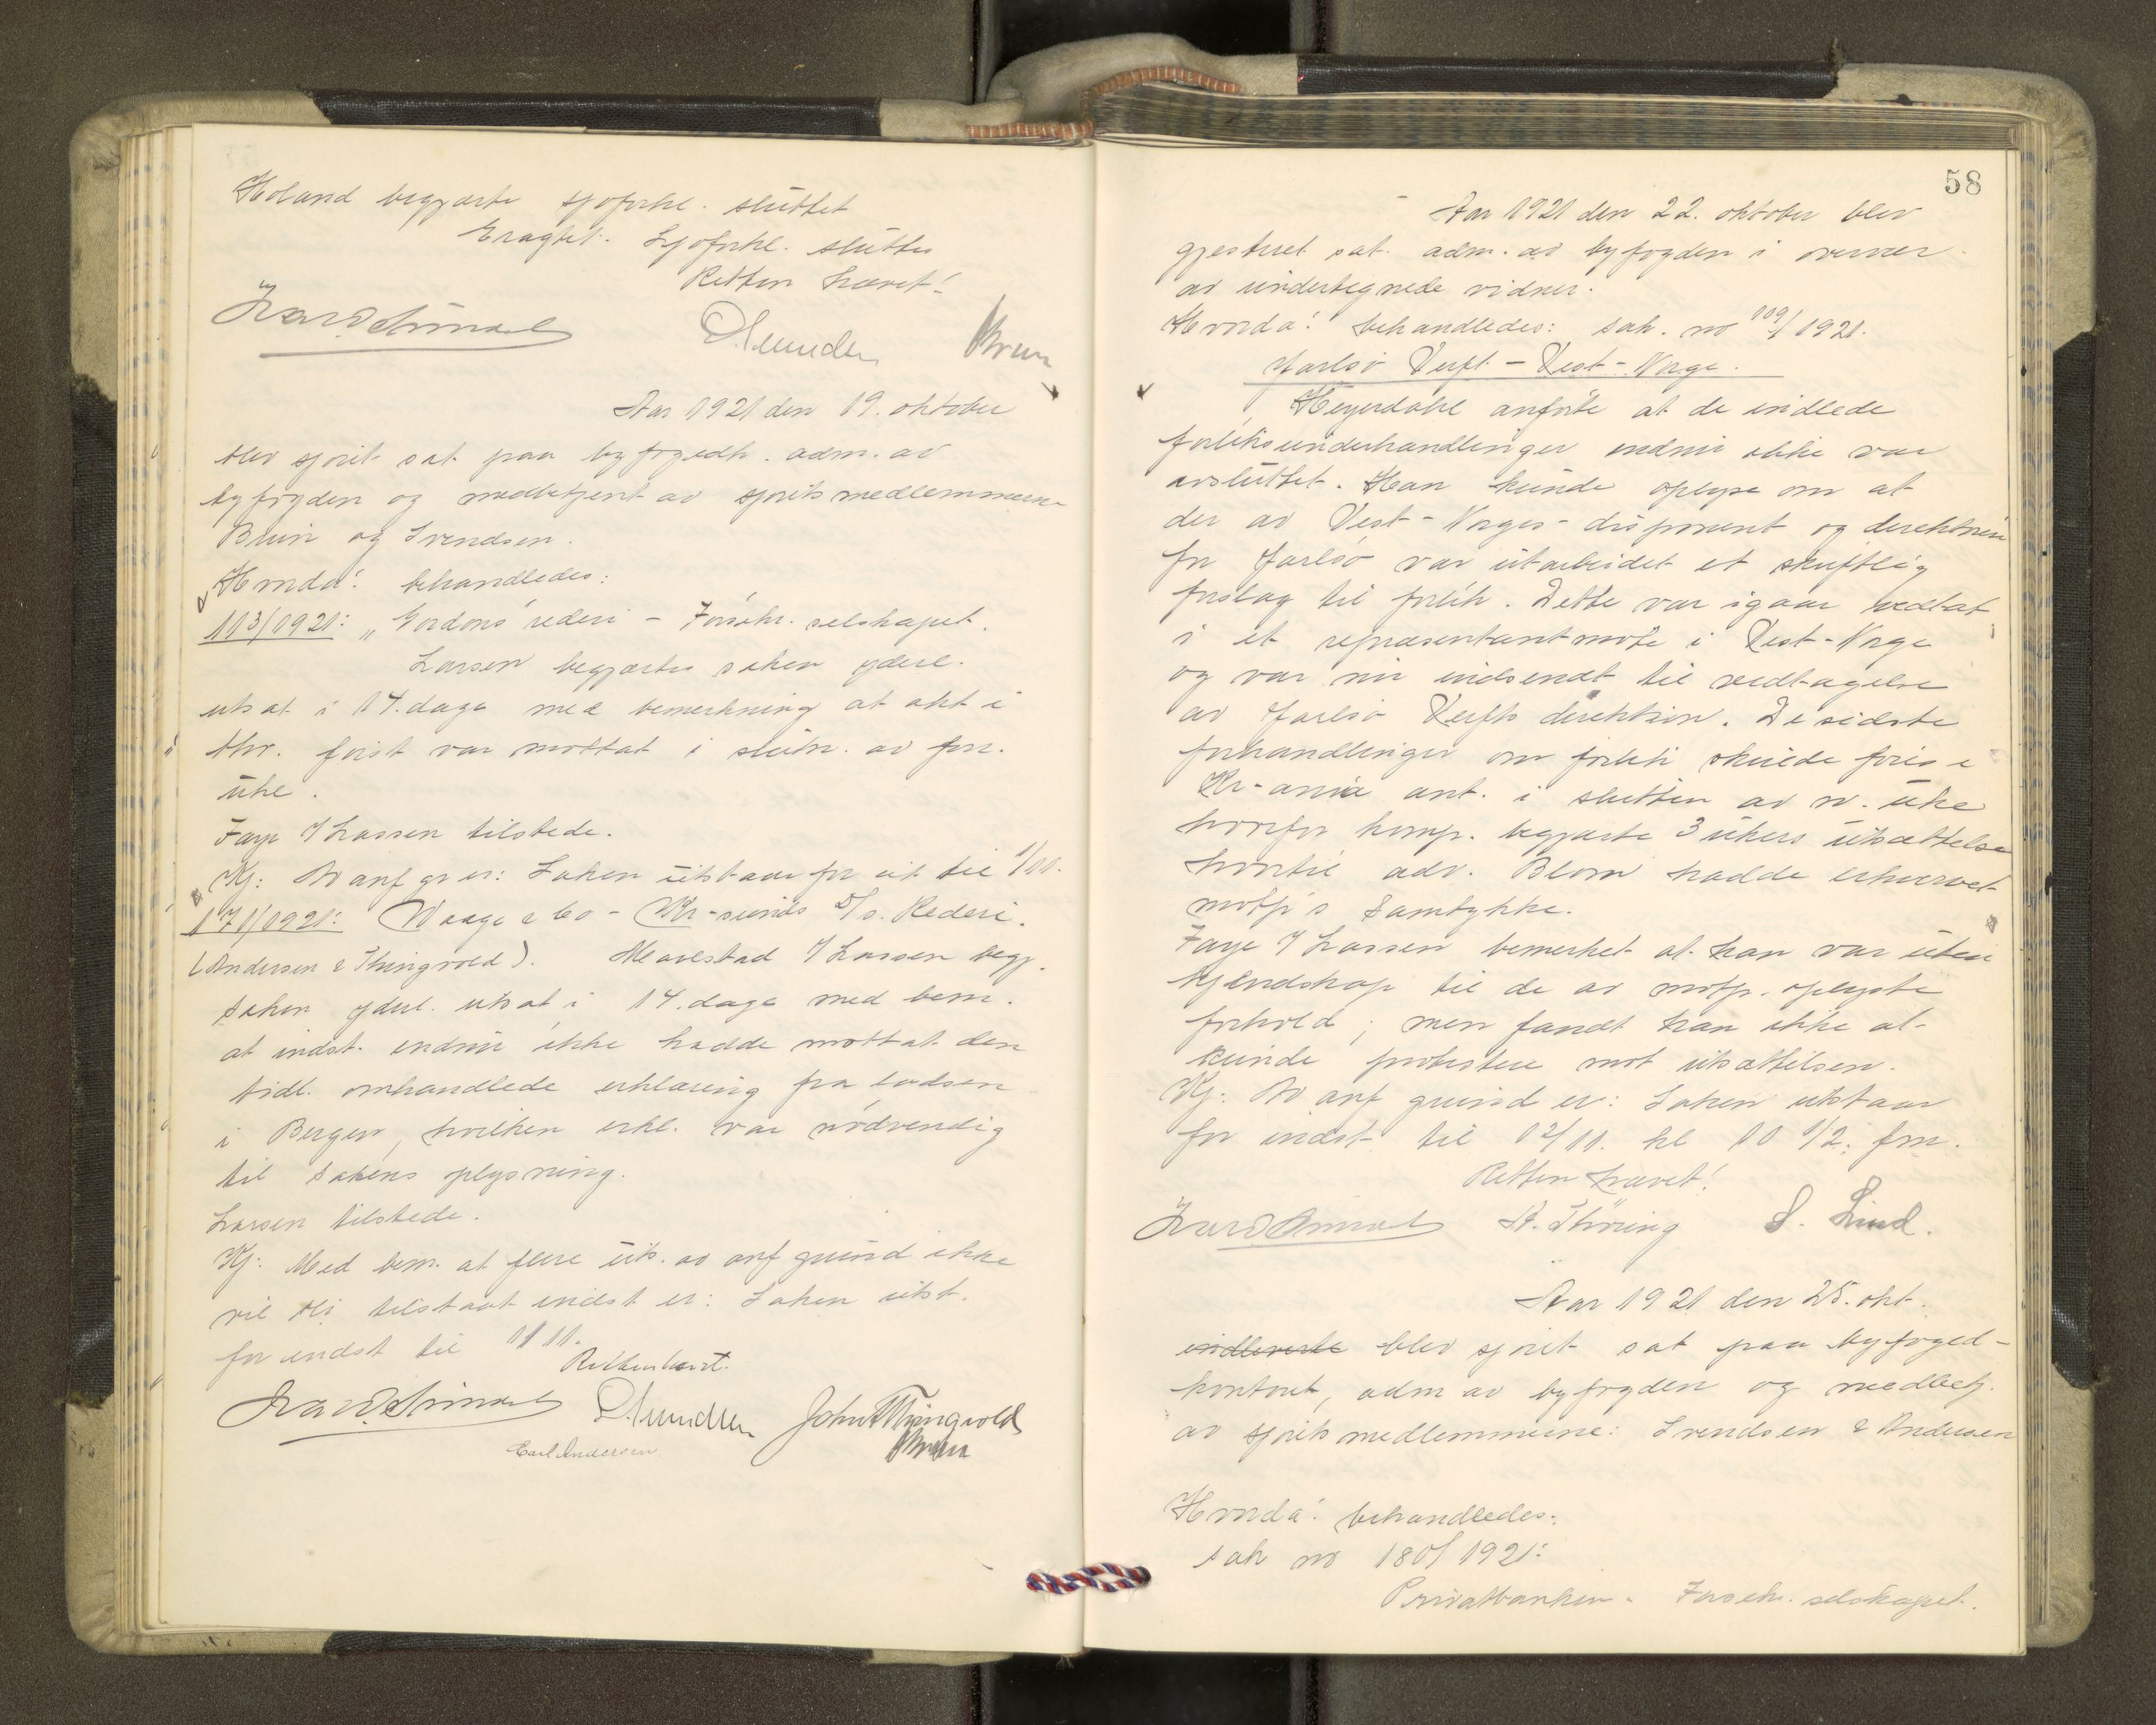 Holand begjærte sjøforkl. sluttet
Eragtet. Sjøforkl. sluttes
Retten hævet!
Brun
Aar 1921 den 19. oktober
blev sjøret sat paa byfogedk. adm. av
byfogden og medbetjent av sjøretsmedlemmerne
Bruun og Svendsen.
Hvorda! behandledes:
113/1921: „Gordons" rederi - Forsikr. selskapet.
Larsen begjærtes saken yderl.
utsat i 14. dage med bemerkning at akt i
thr. først var mottat i slutn. av forr.
uke.
Faye f/ Lassen tilstede.
Kj: Av anf gr er: Saken utstaar for ut til 1/11.
171/1921: Waage & Co - Kr-sunds D/s. Rederi.
(Andersen & Thingvold). Mevlstad f/ Larssen begj.
saken yderl. utsat i 14. dage med bem.
at indst. endnu ikke hadde mottat den
tidl. omhandlede erklæring fra lodsen
i Bergen, hvilken erkl. var nødvendig
til sakens oplysning.
Larsen tilstede.
Kj: Med bem. at flere uts. av anf grund ikke
vil bli tilstaat indst er: Saken utst.
for indst til 1/11.
Retten hævet.
John Thingvold
Carl Andersen Brun
58
Aar 1921 den 22. oktober blev
gjesteret sat. adm. av byfogden i overvær
av undertegnede vidner.
Hvorda! behandledes: sak. no 109/1921.
Jarlsø Verft - Vest-Norge.
Heyerdahl anførte at de indlede
forliksunderhandlinger endnu ikke var
avsluttet. Han kunde oplyse om at
der av Vest-Norges disponent og direktøren
for Jarlsø var utarbeidet et skriftlig
forslag til forlik. Dette var igaar vedtat
i et repræsentantmøte i Vest-Norge
og var nu indsendt til vedtagelse
av Jarlsø Verfts direktion. De sidste
forhandlinger om forlik skulde føres i
Kr-ania ant. i slutten av n. uke
hvorfor komp. begjærte 3 ukers utsættelse
hvortil adv. Blom hadde erhvervet
motp's samtykke.
Faye f/ Lassen bemerket at han var uten
kjendskap til de av motp. oplyste
forhold; men fandt han ikke at
kunde protestere mot utsættelsen.
Kj: Av anf grund er: Saken utstaar
for indst til 12/11. kl 10 1/2 fm.
Retten hævet!
A. Thoring S. Lind.
Aar 1921 den 25. okt.
indleverte blev sjøret sat paa byfoged-
kontoret, adm av byfogden og medbetj.
av sjøretsmedlemmerne: Svendsen & Andersen
Hvorda! behandledes:
sak no 180/1921:
Privatbanken - Forsik. selskapet.